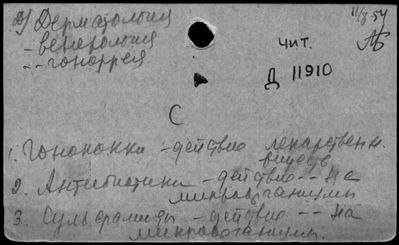 а) Дерматология
11/3 54
- венерология
чит.
- - гоноррея
Д 11910
С
1. Гонококки - действие лекарственн.
веществ
2. Антибиотики - действие - - на
микроорганизмы
3. Сульфамиды - действие - - на
микроорганизмы.